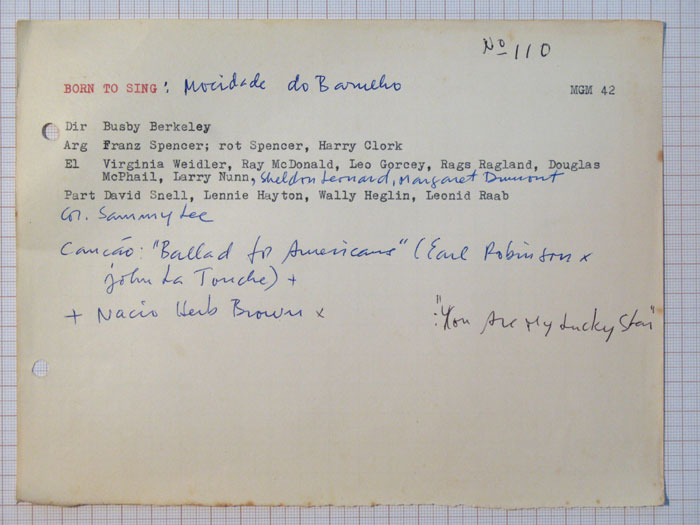 Nº 110
BORN TO SING: Mocidade do Barulho MGM 42
Dir Busby Berkeley
Arg Franz Spencer; rot Spencer, Harry Clork
El Virginia Weidler, Ray McDonald, Leo Gorcey, Rags Ragland, Douglas
McPhail, Larry Nunn, Sheldon Leonard, Margaret Dumont
Part David Snell, Lennie Hayton, Wally Heglin, Leonid Raab
Cor. Sammy Lee
Canção: "Ballad for Americans" (Earl Robinson x
John La Touche) +
+ Nacio Herb Brown x : "You Are My Lucky Star"